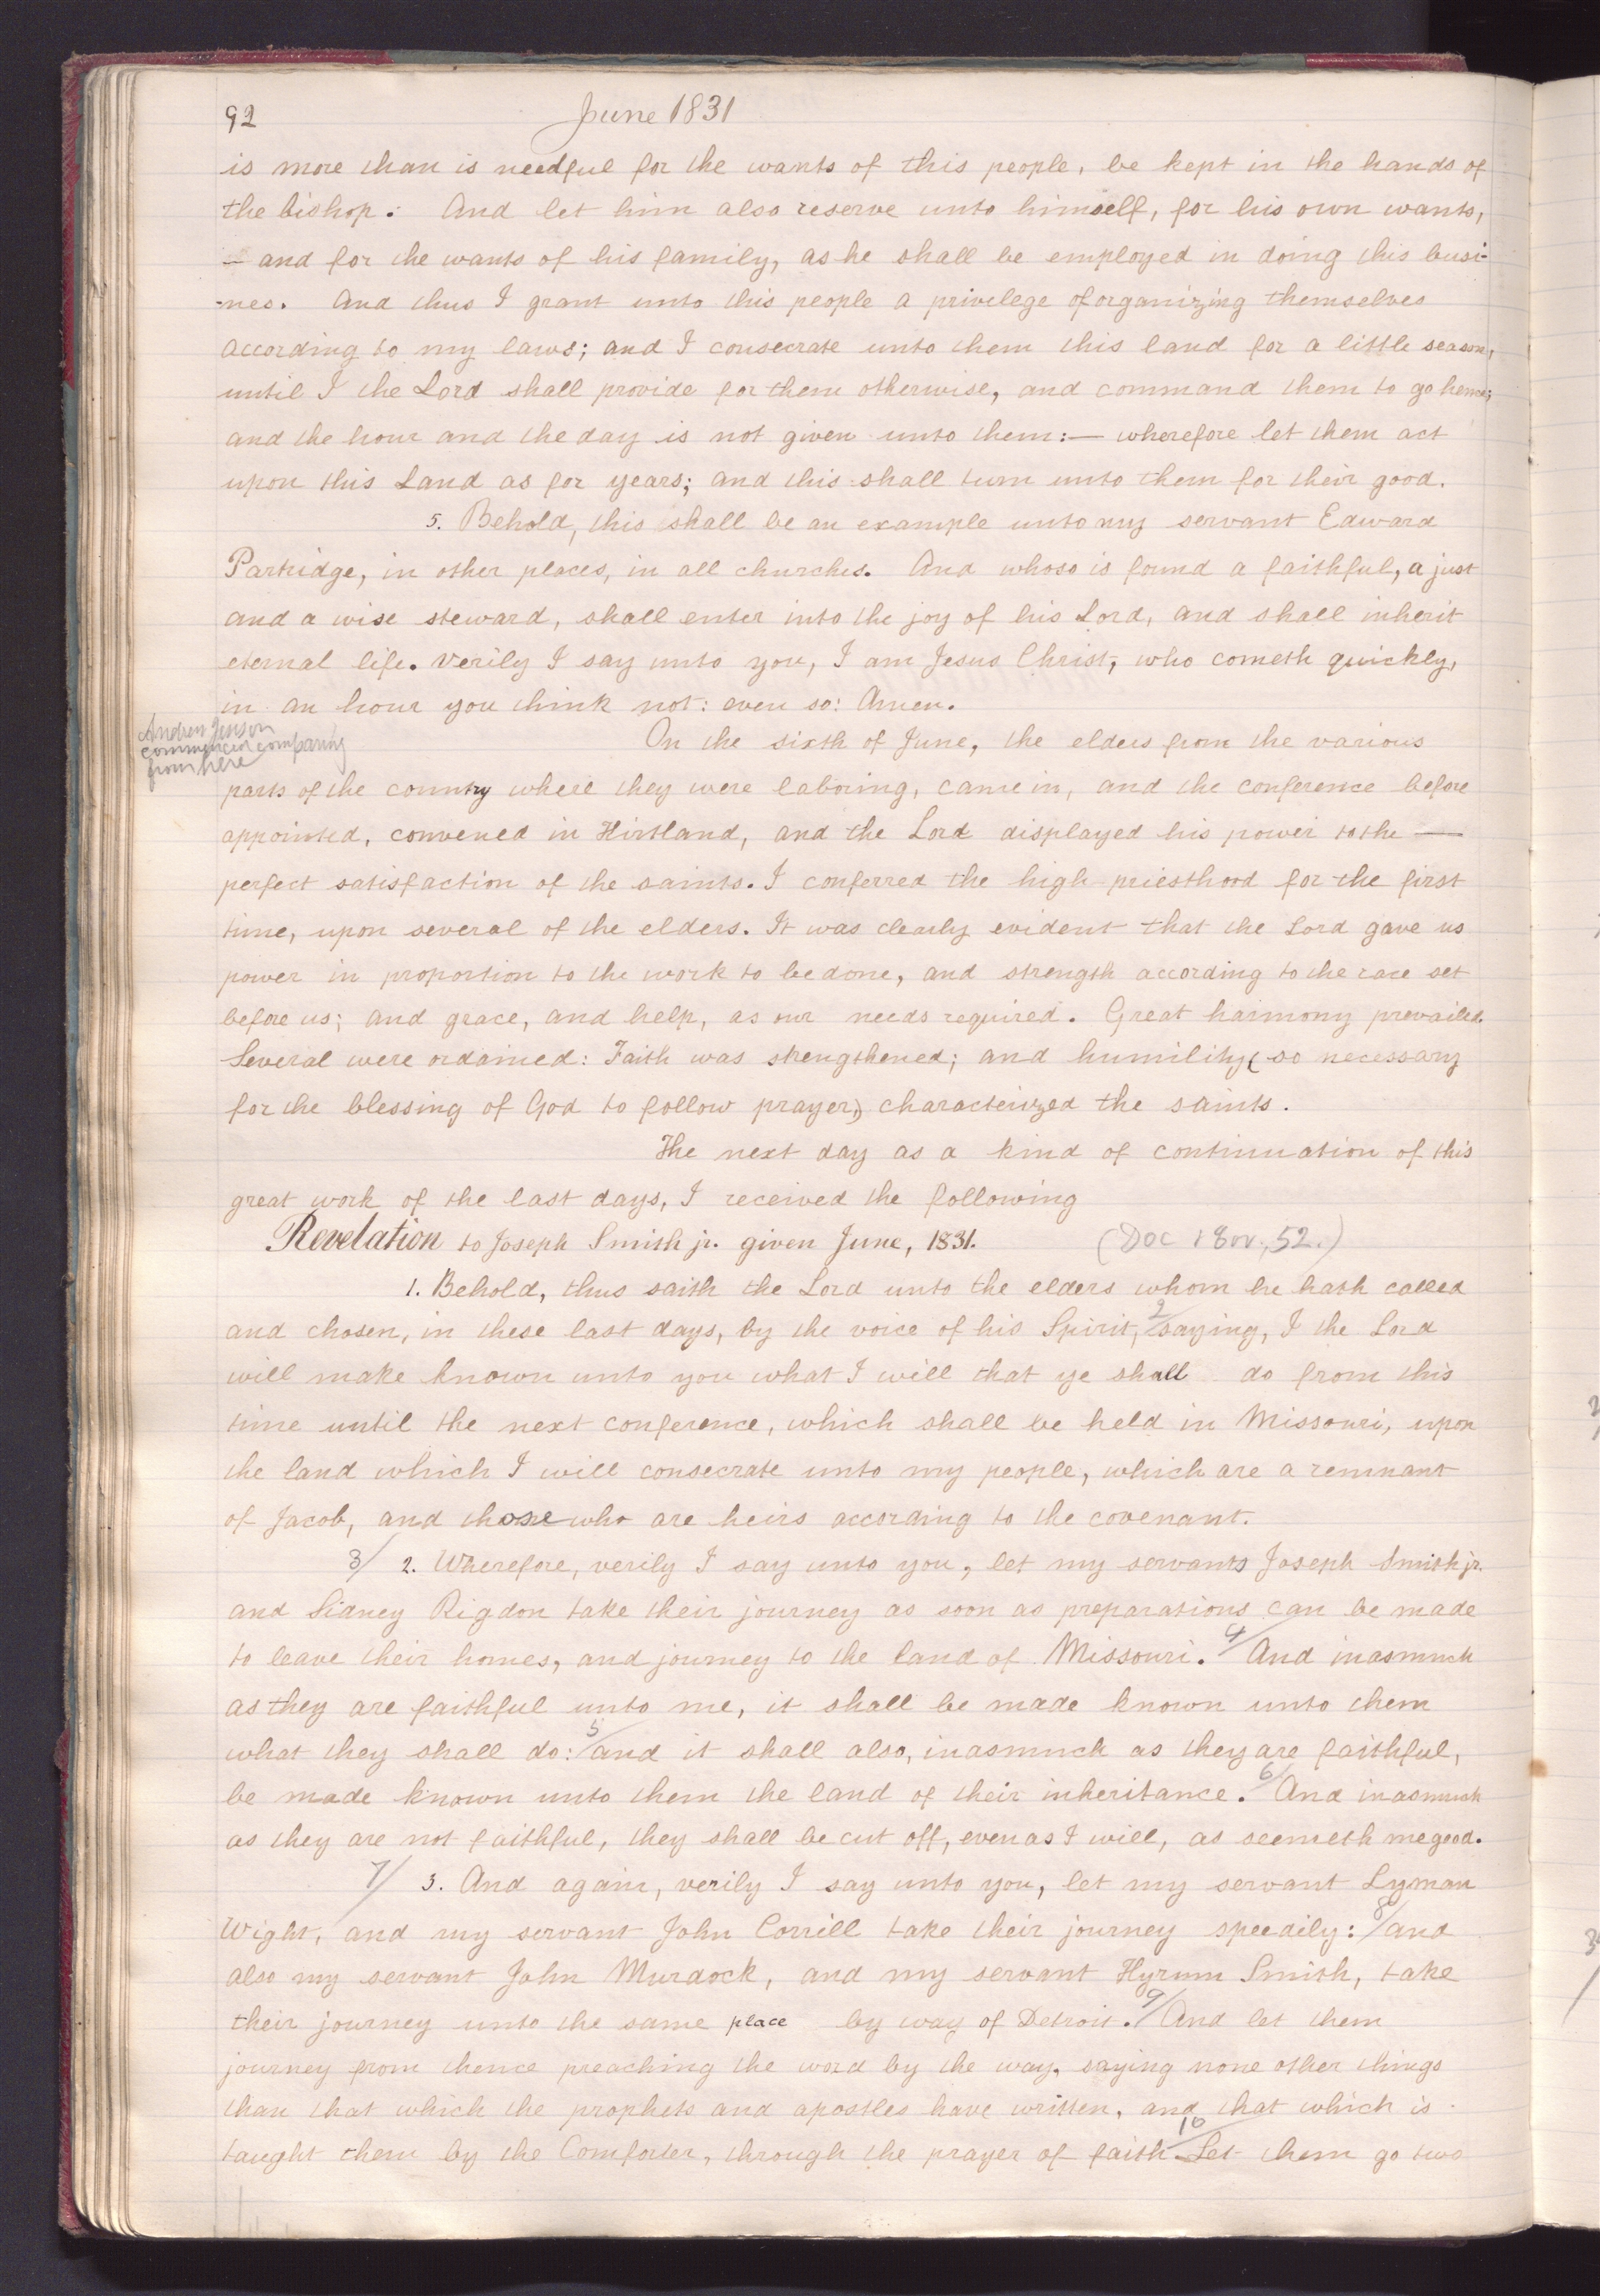 92 June 1831
is more than is needful for the wants of this people, be kept in the hands of
the bishop. And let him also reserve unto himself, for his own wants,
— and for the wants of his family, as he shall be employed in doing this busi-
-nes. And thus I grant unto this people a privelege of organizing themselves
according to my laws; and I consecrate unto them this land for a little season,
until I the Lord shall provide for them otherwise, and command them to go hence;
and the hour and the day is not given unto them:— wherefore let them act
upon this Land as for years; and this shall turn unto them for their good.
5. Behold, this shall be an example unto my servant Edward
Partridge, in other places, in all churches. And whoso is found a faithful, a just
and a wise steward, shall enter into the joy of his Lord, and shall inherit
eternal life. Verily I say unto you, I am Jesus Christ, who cometh quickly,
in an hour you think not: even so: Amen.
Andrew Jenson
commenced comparing
from here
On the sixth of June, the elders from the various
parts of the country where they were laboring, came in, and the conference before
appointed, convened in Kirtland, and the Lord displayed his power to the —
perfect satisfaction of the saints. I conferred the high priesthood for the first
time, upon several of the elders. It was clearly evident that the Lord gave us
power in proportion to the work to be done, and strength according to the race set
before us; and grace, and help, as our needs required. Great harmony prevailed.
Several were ordained: Faith was strengthened; and humility, (so necessary
for the blessing of God to follow prayer,) characterized the saints.
The next day as a kind of continuation of this
great work of the last days, I received the following
Revelation to Joseph Smith jr. given June, 1831. (Doc & Cov., 52.)
1. Behold, thus saith the Lord unto the elders whom he hath called
and chosen, in these last days, by the voice of his Spirit, 2/ saying, I the Lord
will make known unto you what I will that ye shall do from this
time until the next conference, which shall be held in Missouri, upon
the land which I will consecrate unto my people, which are a remnant
of Jacob, and those who are heirs according to the covenant.
3/ 2. Wherefore, verily I say unto you, let my servants Joseph Smith jr.
and Sidney Rigdon take their journey as soon as preparations can be made
to leave their homes, and journey to the land of Missouri. 4/ And inasmuch
as they are faithful unto me, it shall be made known unto them
what they shall do: 5/ and it shall also, inasmuch as they are faithful,
be made known unto them the land of their inheritance. 6/ And inasmuch
as they are not faithful, they shall be cut off, even as I will, as seemeth me good.
7/ 3. And again, verily I say unto you, let my servant Lyman
Wight, and my servant John Corrill take their journey speedily: 8/ and
also my servant John Murdock, and my servant Hyrum Smith, take
their journey unto the same place by way of Detroit. 9/ And let them
journey from thence preaching the word by the way, saying none other things
than that which the prophets and apostles have written, and that which is
taught them by the Comforter, through the prayer of faith. 10/ Let them go two